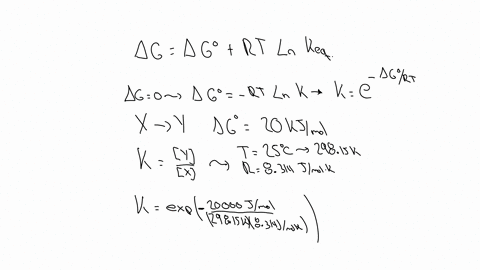 ΔG = ΔG° + RT Ln Keq.
ΔG=0 ⤳ ΔG° = -RT Ln K → K = e^-ΔG°/RT
X → Y ΔG° = 20 KJ/mol
K = [Y]/[X] ⤳ T = 25°C → 298.15K
R = 8.314 J/mol·K
K = exp(-20000 J/mol / (298.15K)(8.314 J/molK))